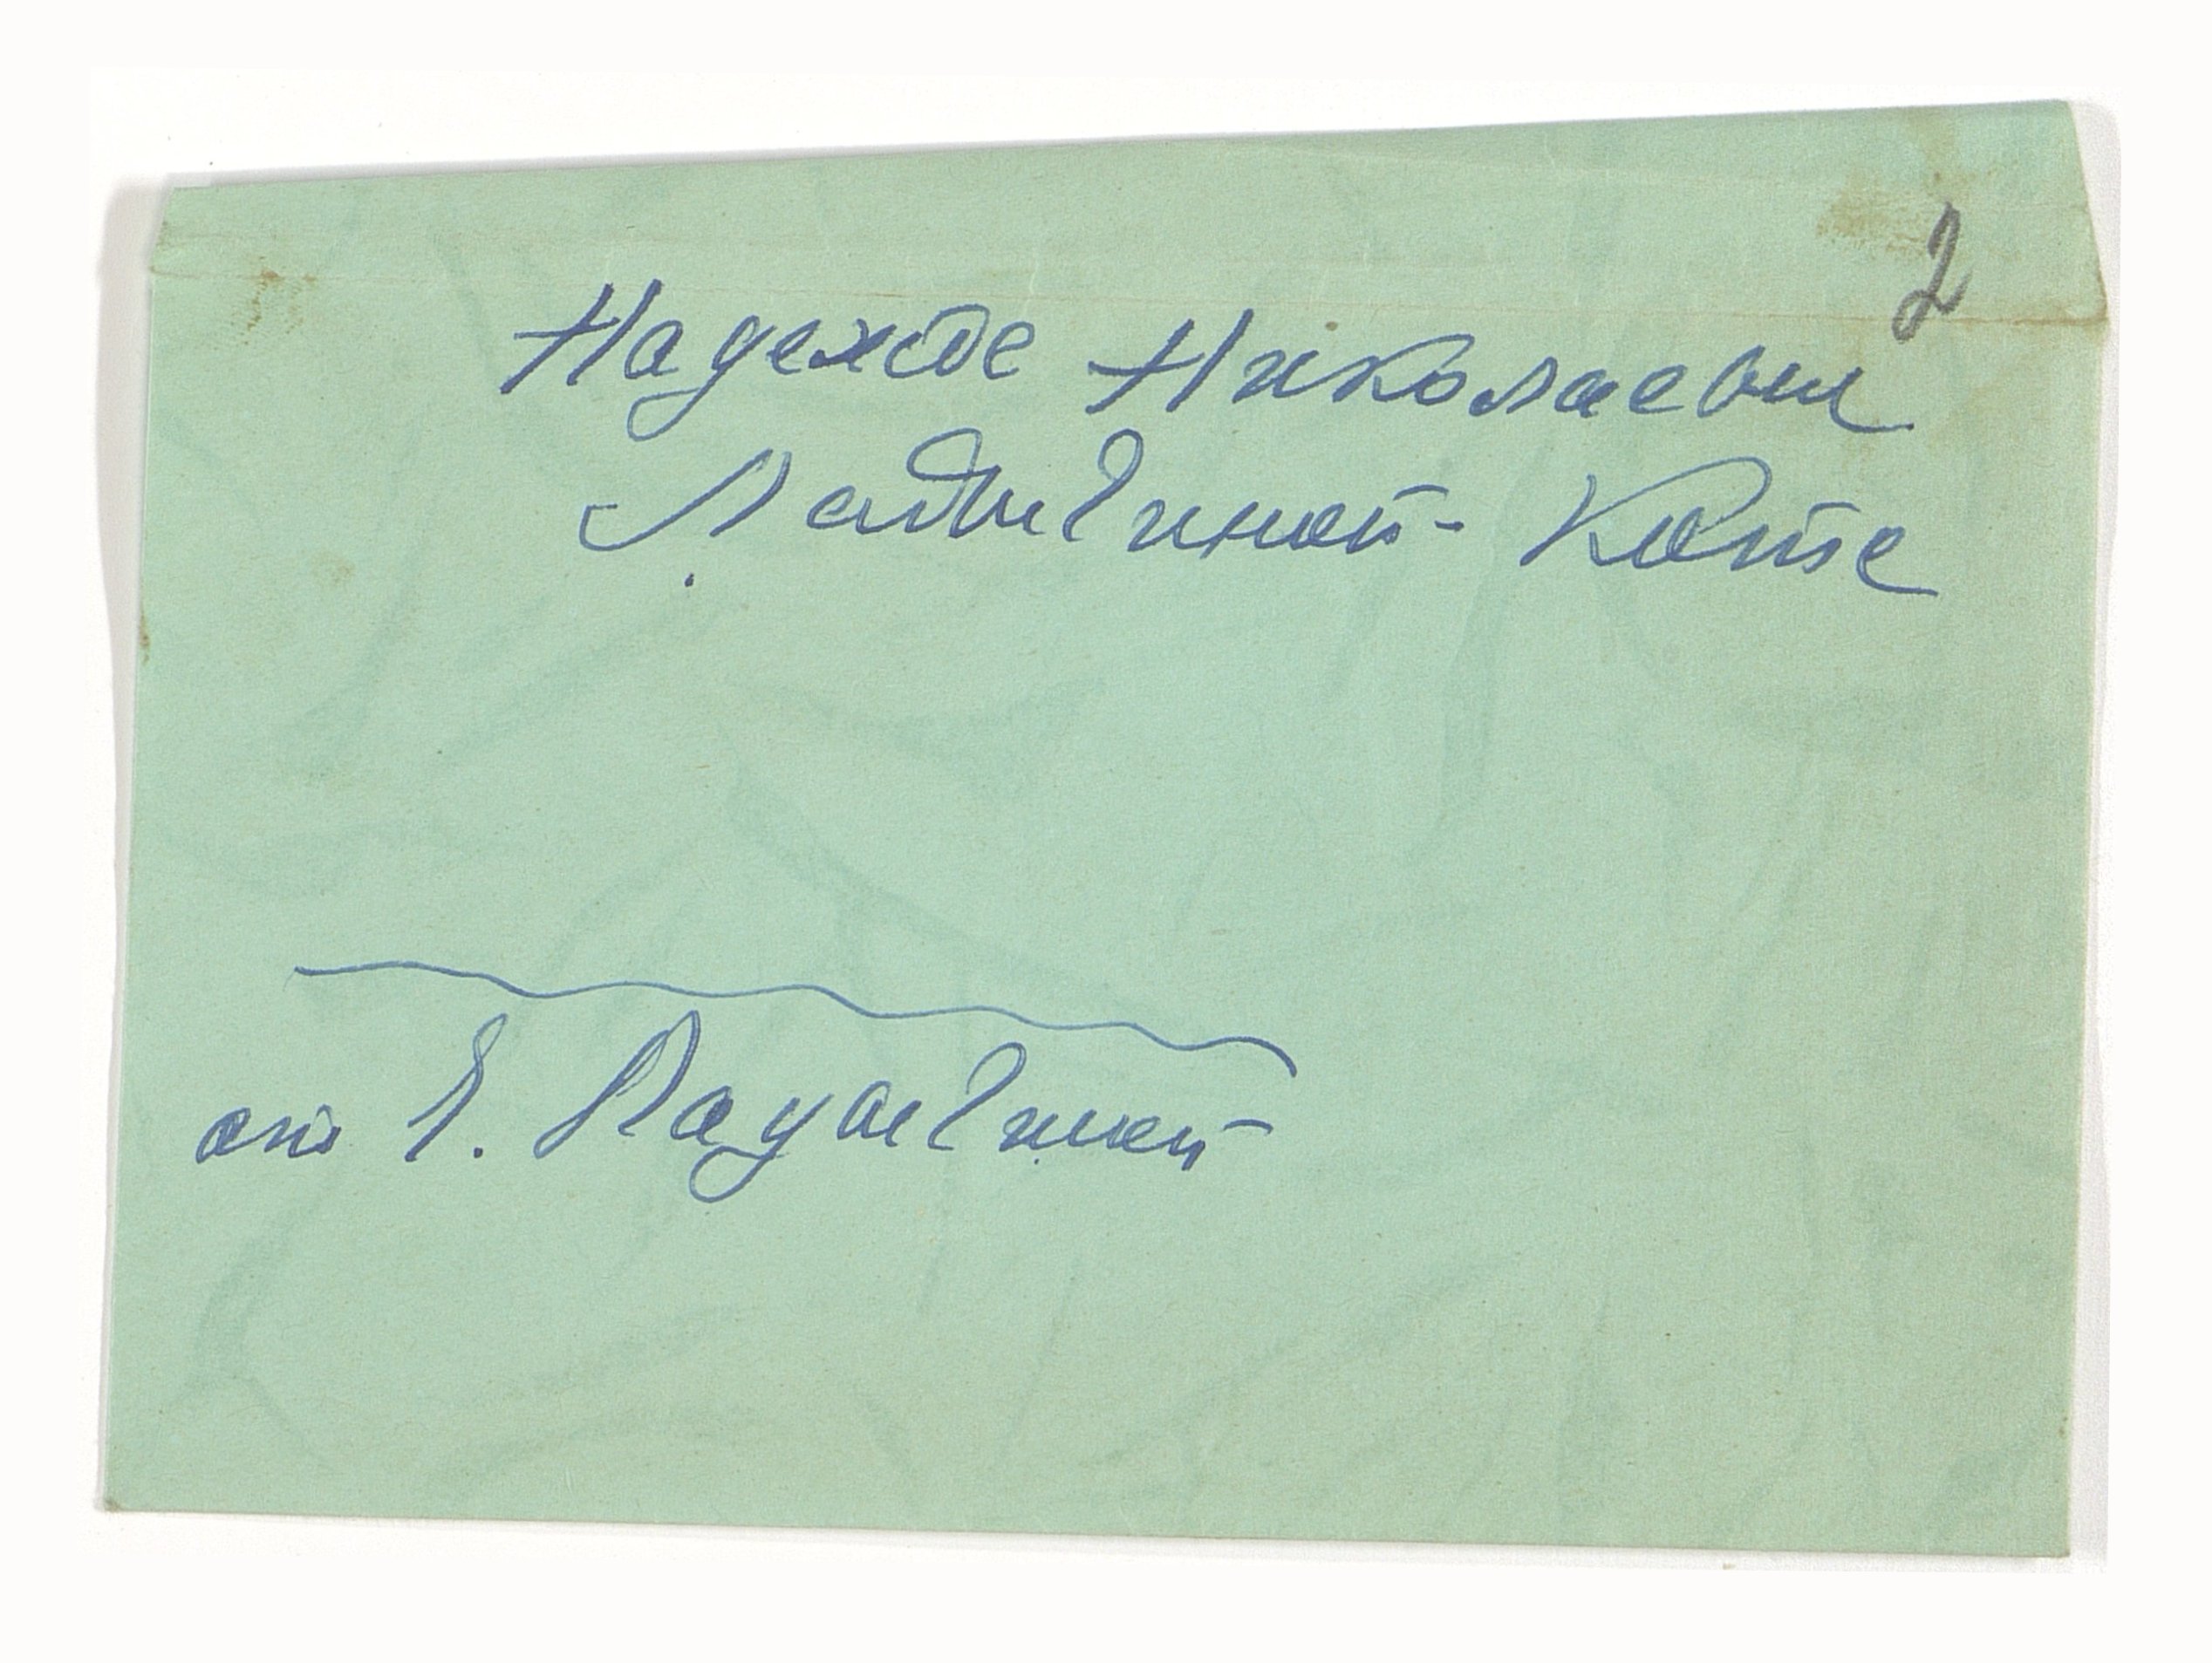 2
Надежде Николаевне
Ладыгиной- Котс
от Ладыгиной